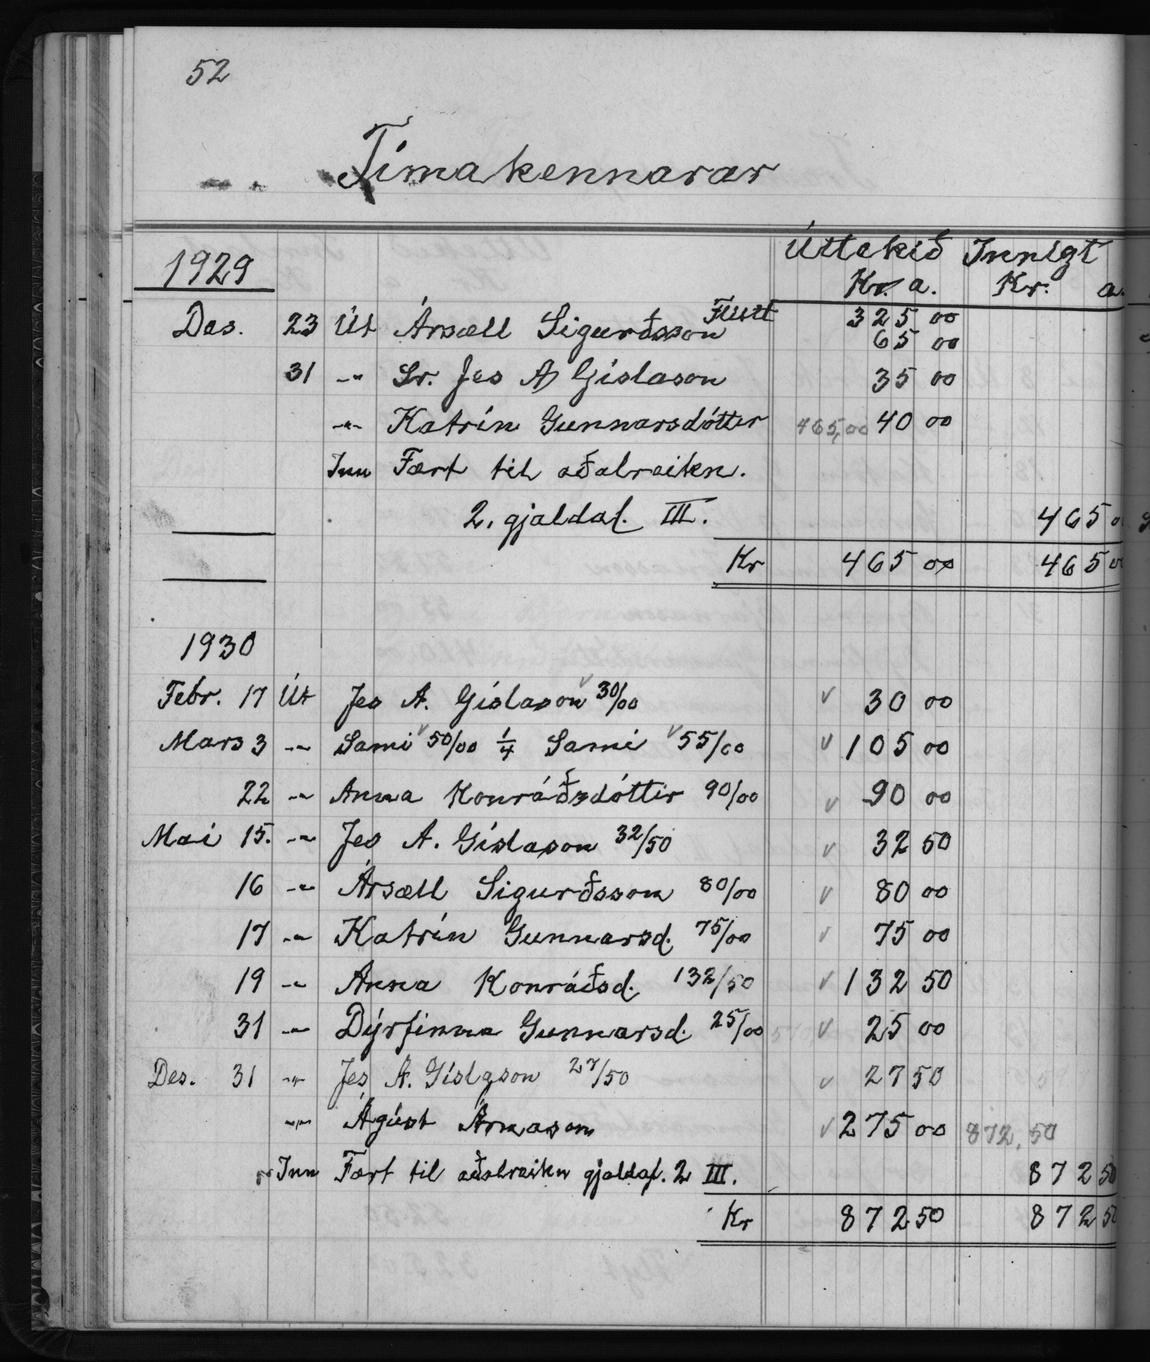 52
Tímakennarar
Úttekið Innlegt
1929 Kr. a. Kr. a.
Flutt 325 00
Des. 23 Út Ársæll Sigurðsson 65 00
31 -"- Sr. Jes A Gíslason 35 00
-"- Katrín Gunnarsdóttir 465,00 40 00
Inn Fært til aðalreikn.
2. gjaldaf. III. 465 00
Kr 465 00 465 00
1930
Febr. 17 Út Jes A. Gíslason 30/00 30 00
Mars 3 -"- Sami 50/00 1/4 Sami 55/00 105 00
22 -"- Anna Konráðsdóttir 90/00 90 00
Mai 15. -"- Jes A. Gíslason 32/50 32 50
16 -"- Ársæll Sigurðsson 80/00 80 00
17 -"- Katrín Gunnarsd. 75/00 75 00
19 -"- Anna Konráðsd. 132/50 132 50
31 -"- Dýrfinna Gunnarsd. 25/00 25 00
Des. 31 -"- Jes A. Gíslason 27/50 27 50
-"- Ágúst Árnason 275 00 872,50
Inn Fært til aðalreikn gjaldaf. 2 III. 872 50
Kr 872 50 872 50